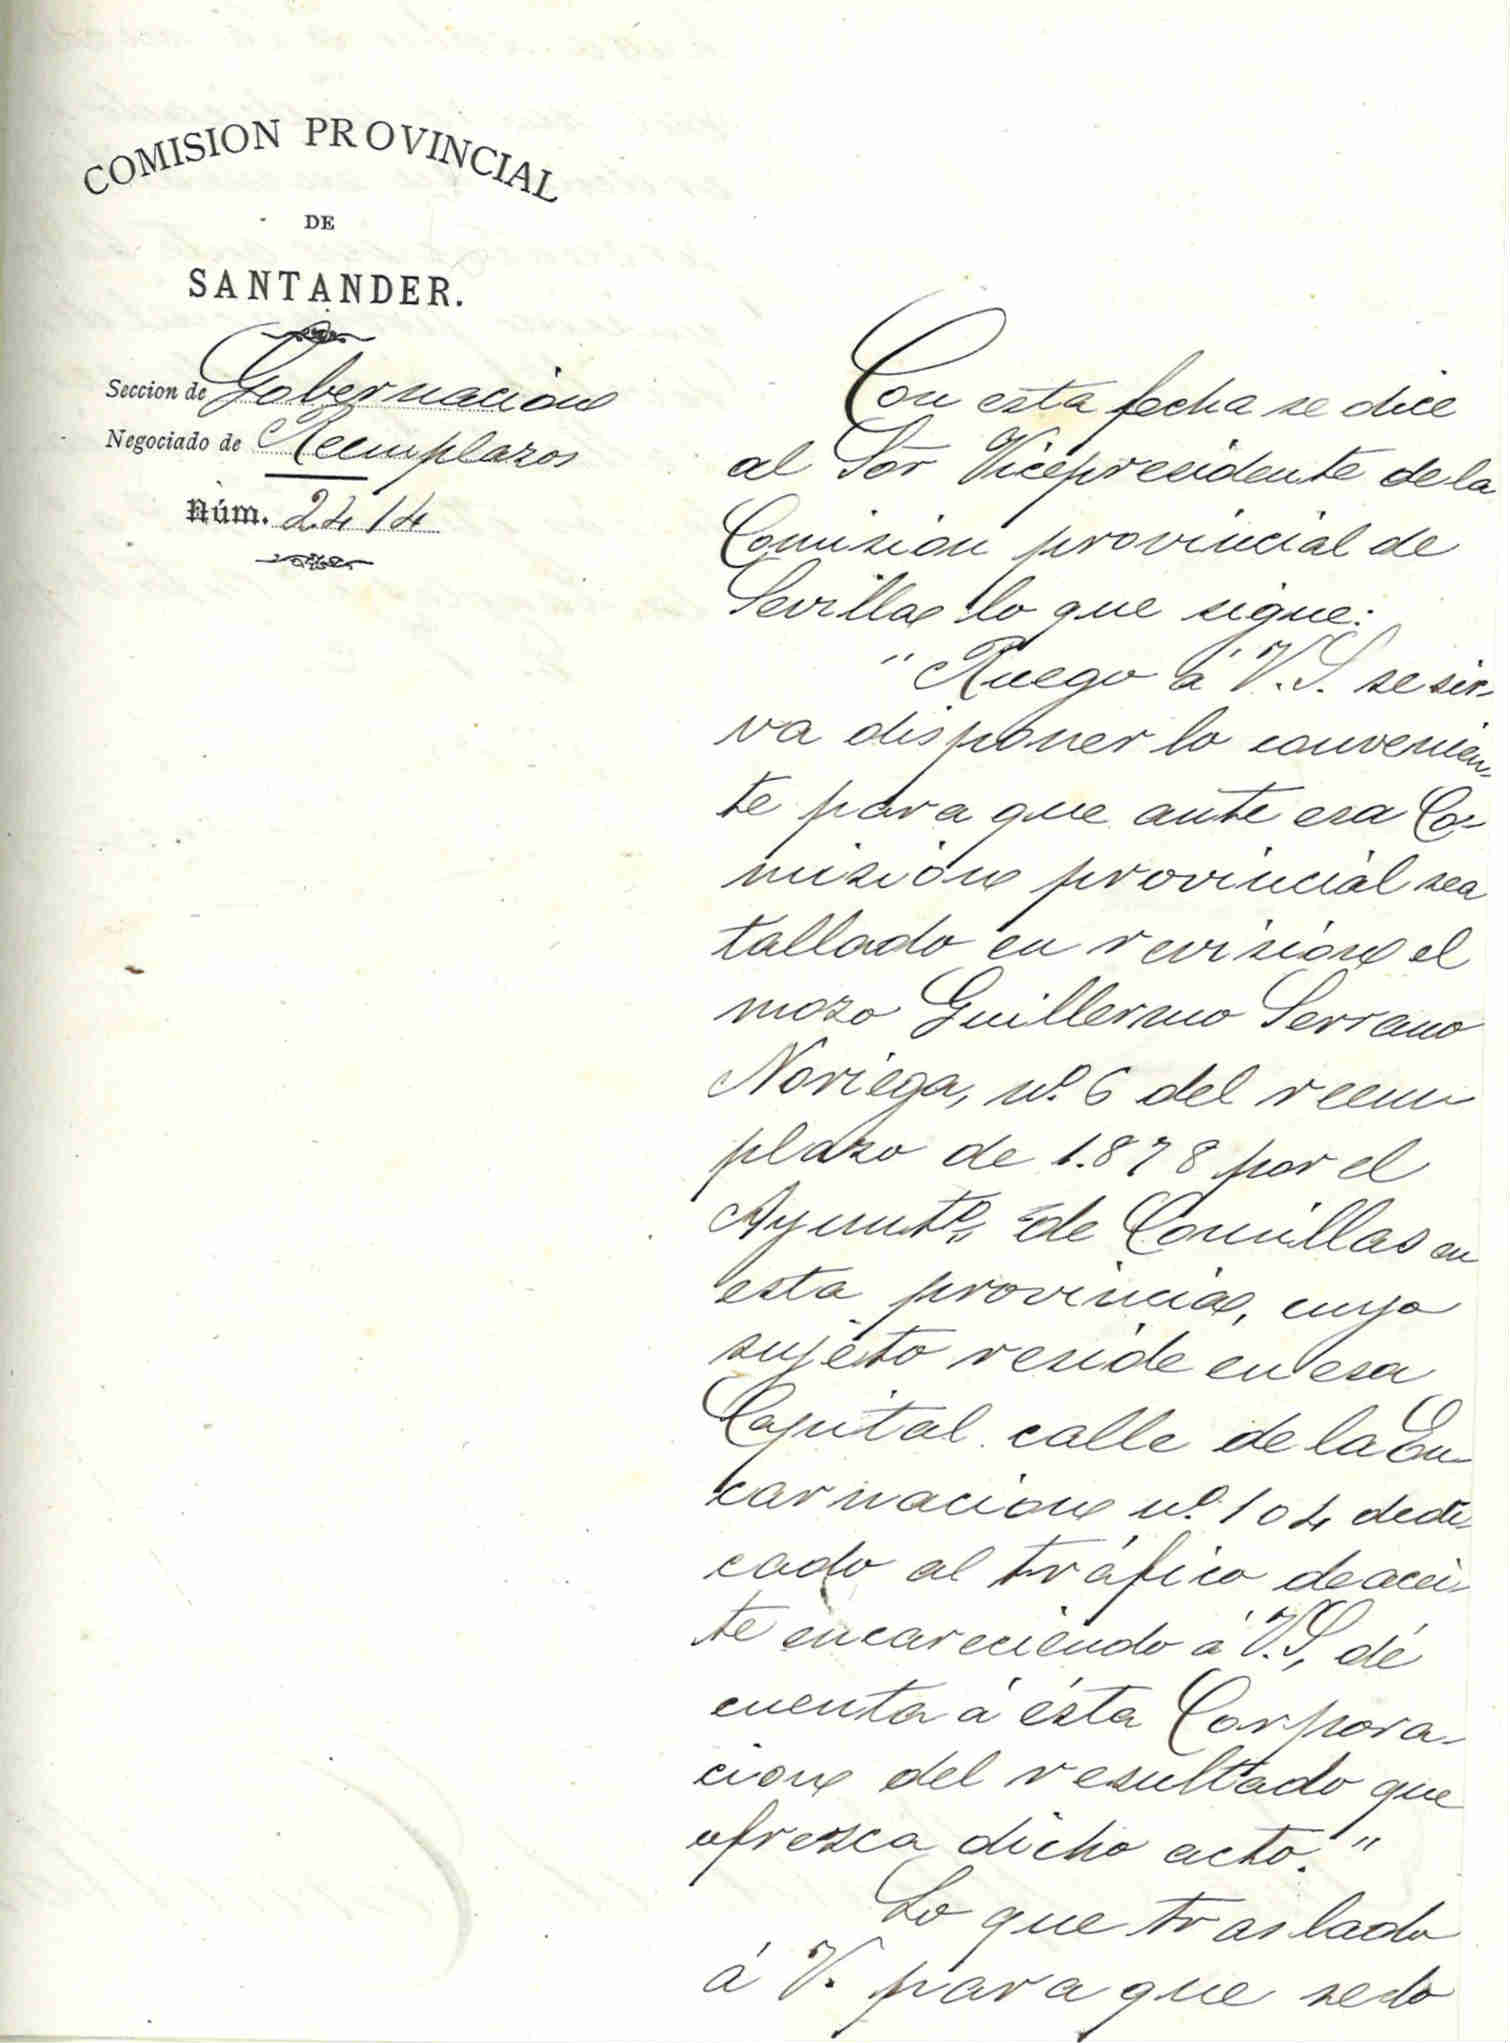 COMISION PROVINCIAL
DE
SANTANDER.
Seccion de Gobernación
Negociado de Reemplazos
Núm. 2414
Con esta fecha se dice
al Sor Vicepresidente de la
Comision provincial de
Sevilla lo que sigue:
"Ruego á V.S. se sir-
va disponer lo convenien-
te para que ante esa Co-
misión provincial sea
tallado en revisión el
mozo Guillermo Serrano
Noriega, nº 6 del reem
plazo de 1.878 por el
Ayuntº de Comillas en
esta provincia, cuyo
sujeto reside en esa
Capital calle de la En
carnacion nº 104 dedi-
cado al tráfico de acei-
te encareciendo á V.S, dé
cuenta á ésta Corpora-
cion del resultado que
ofrezca dicho acto."
Lo que traslado
á V. para que se lo